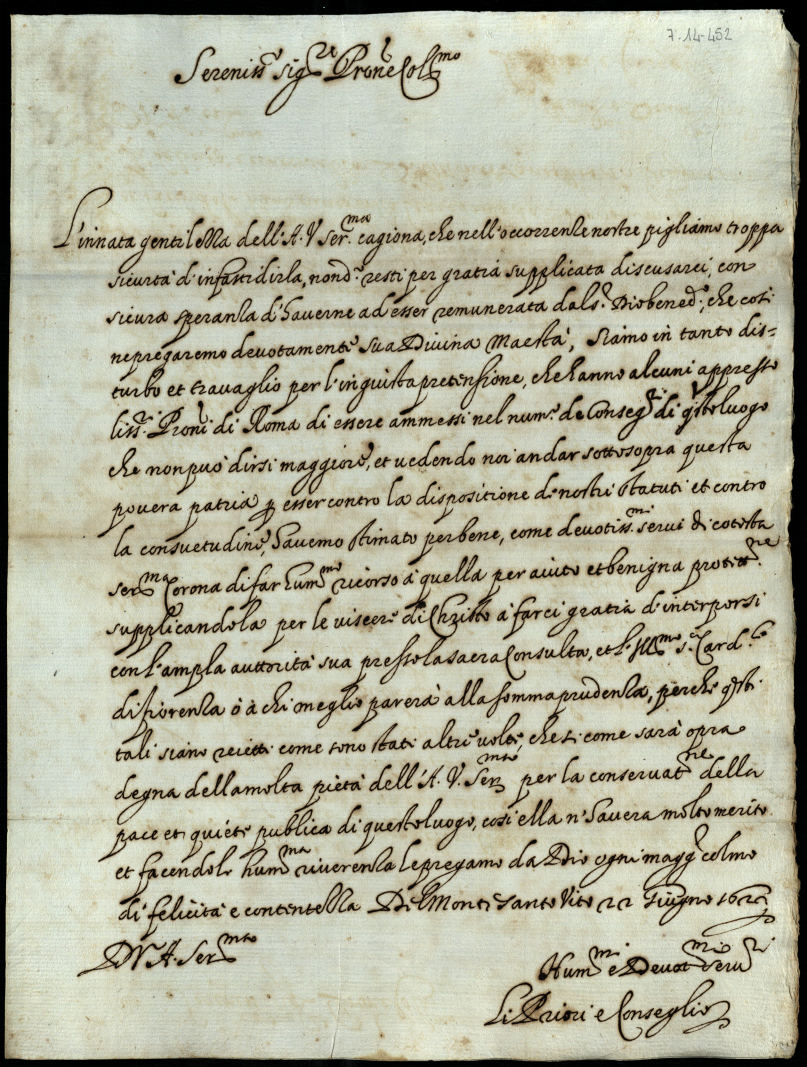 7-14-452
Sereniss.e Sig.re Pron̄e Coll.mo
L'innata gentilezza dell'A. V. Ser.ma cagiona, che nell'occorrenze nostre pigliamo troppa
sicurtà d'infastidirla, nond.e resti per gratia supplicata di scusarci, con
sicura speranza d'haverne ad esser remunerata dal S.r Dio bened.o, che così
ne pregaremo devotamente sua Divina Maestà, Siamo in tanto dis=
turbo et travaglio per l'ingiusta pretensione, che hanno alcuni appresso
l'Ill.ri Proñi di Roma di essere ammessi nel num.o de Conseg.ri di q̃sto luogo
che non può dirsi maggiore, et vedendo noi andar sottosopra questa
povera patria ꝑ esser contro la dispositione de nostri statuti et contro
la consuetudine, havemo stimato per bene, come devotiss.mi servi di cotesta
Ser.ma Corona di far hum.mo ricorso à quella per aiuto et benigna protett.ne
supplicandola per le viscere di Christo à farci gratia d'interporsi
con l'ampla auttorità sua presso la sacra Consulta, et l'Ill.mo S.r Card.le
di fiorenza ò à chi meglio parerà alla somma prudenza, perche q̃sti
tali siano reietti come sono stati altre volte, che si come sarà opra
degna della molta pietà dell'A. V. Ser.ma per la conservat.ne della
pace et quiete publica di questo luogo, così ella n'haverà molto merito
et facendole hum.ma riverenza le pregamo da Dio ogni magg.r colmo
di felicità e contentezza Del Monte Santo Vito 22 Giugno
D. V. A. Ser.ma
Hum.mi e Devot.mi Serv.ri
Li Priori e Conseglio